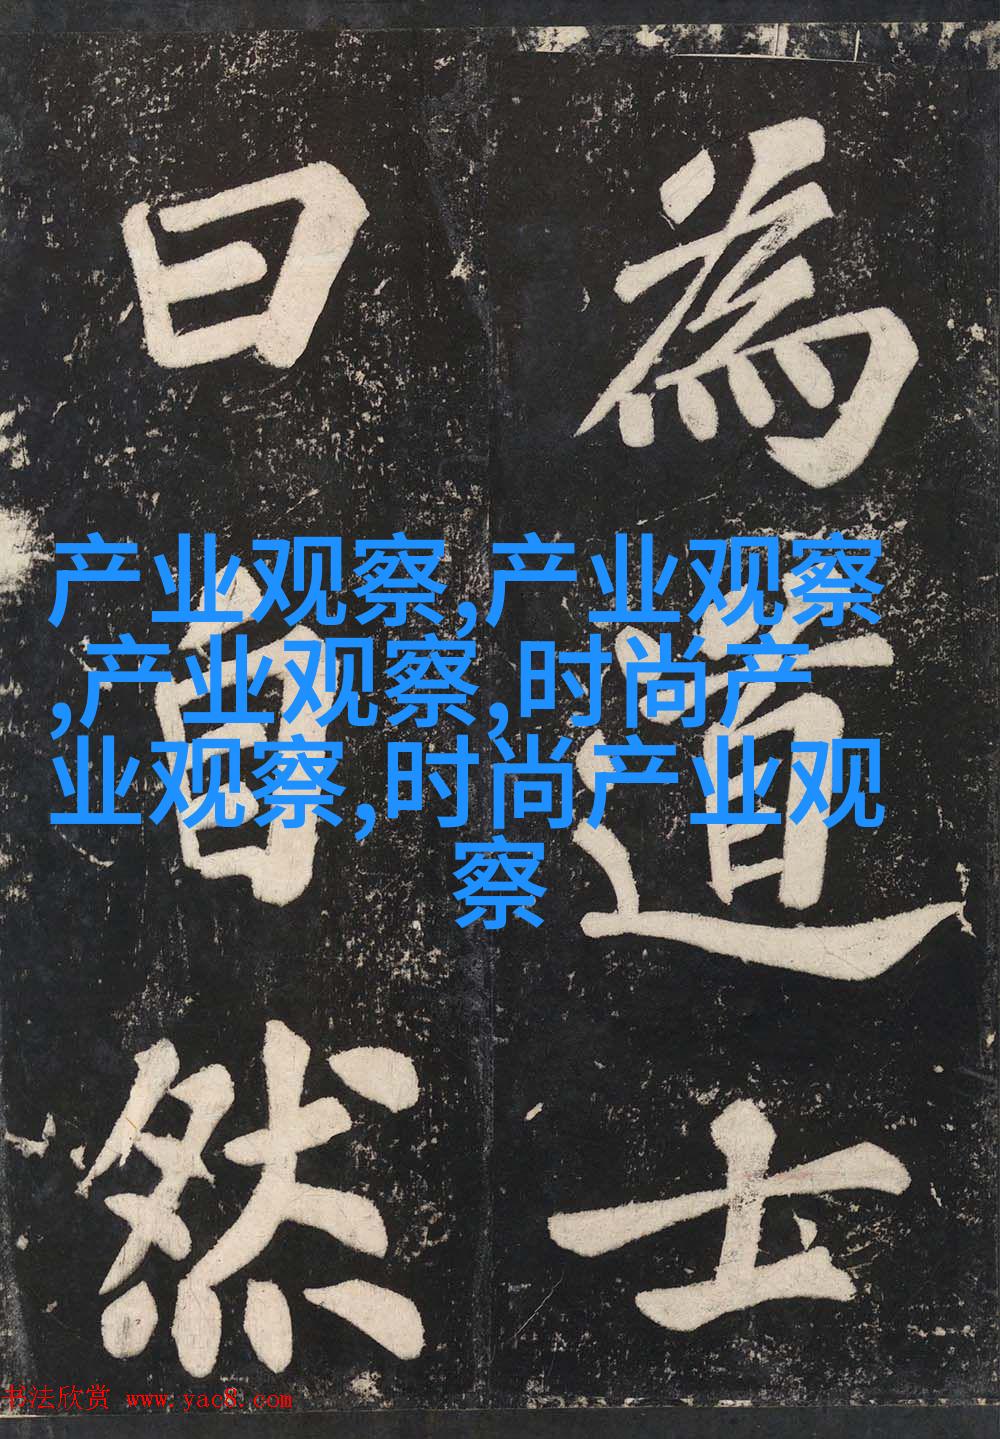 為道士
曰自然
产业观察,产业观察
,产业观察,时尚产
业观察,时尚产业观
察
书法欣赏 www.yac8.com